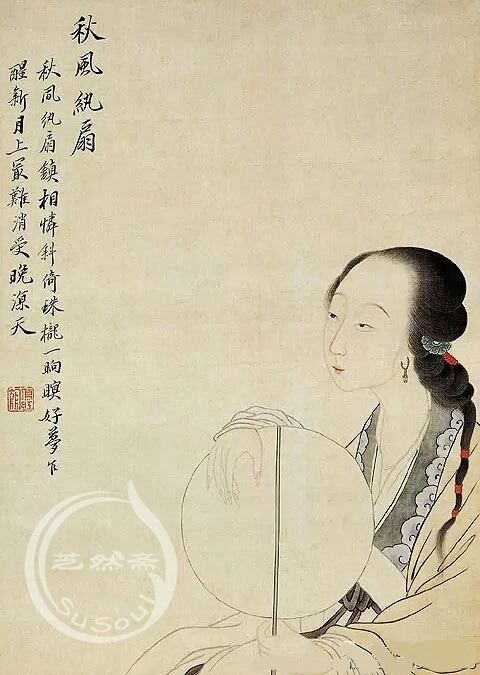 秋風紈扇
秋風紈扇鎮相憐斜倚珠櫳一晌瞑好夢乍
醒新月上最難消受晚涼天
芝然斋
SuSoul